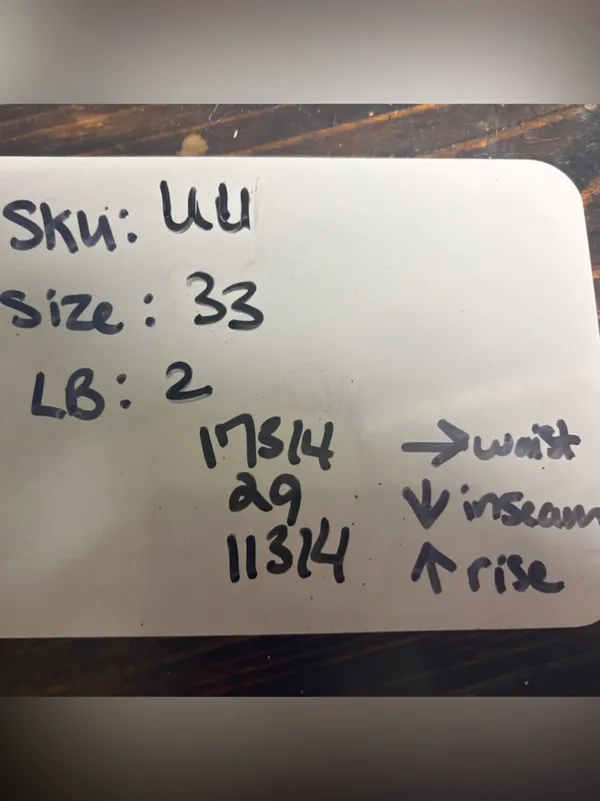 SKU: UU
Size: 33
LB: 2
17 3/4 → waist
29 ↓ inseam
11 3/4 ↑ rise